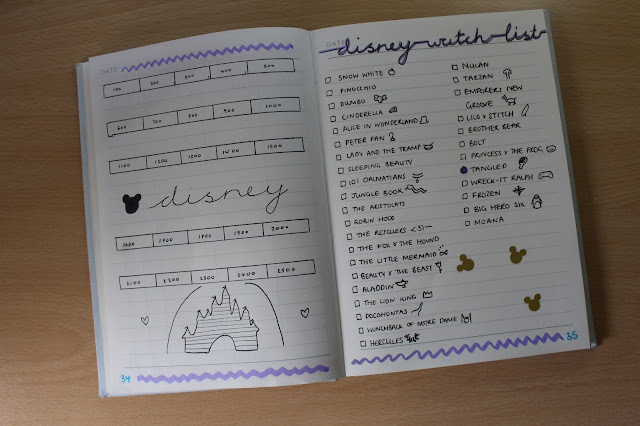 DATE
100 200 300 400 500
600 700 800 900 1000
1100 1200 1300 1400 1500
disney
1600 1700 1800 1900 2000
2100 2200 2300 2400 2500
34
DATE
disney watch list
SNOW WHITE
PINOCCHIO
DUMBO
CINDERELLA
ALICE IN WONDERLAND
PETER PAN
LADY AND THE TRAMP
SLEEPING BEAUTY
101 DALMATIANS
JUNGLE BOOK
THE ARISTOCATS
ROBIN HOOD
THE RESCUERS
THE FOX & THE HOUND
THE LITTLE MERMAID
BEAUTY & THE BEAST
ALADDIN
THE LION KING
POCOHONTAS
HUNCHBACK OF NOTRE DAME
HERCULES
MULAN
TARZAN
EMPORERS NEW
GROOVE
LILO & STITCH
BROTHER BEAR
BOLT
PRINCESS & THE FROG
TANGLED
WRECK-IT RALPH
FROZEN
BIG HERO SIX
MOANA
35